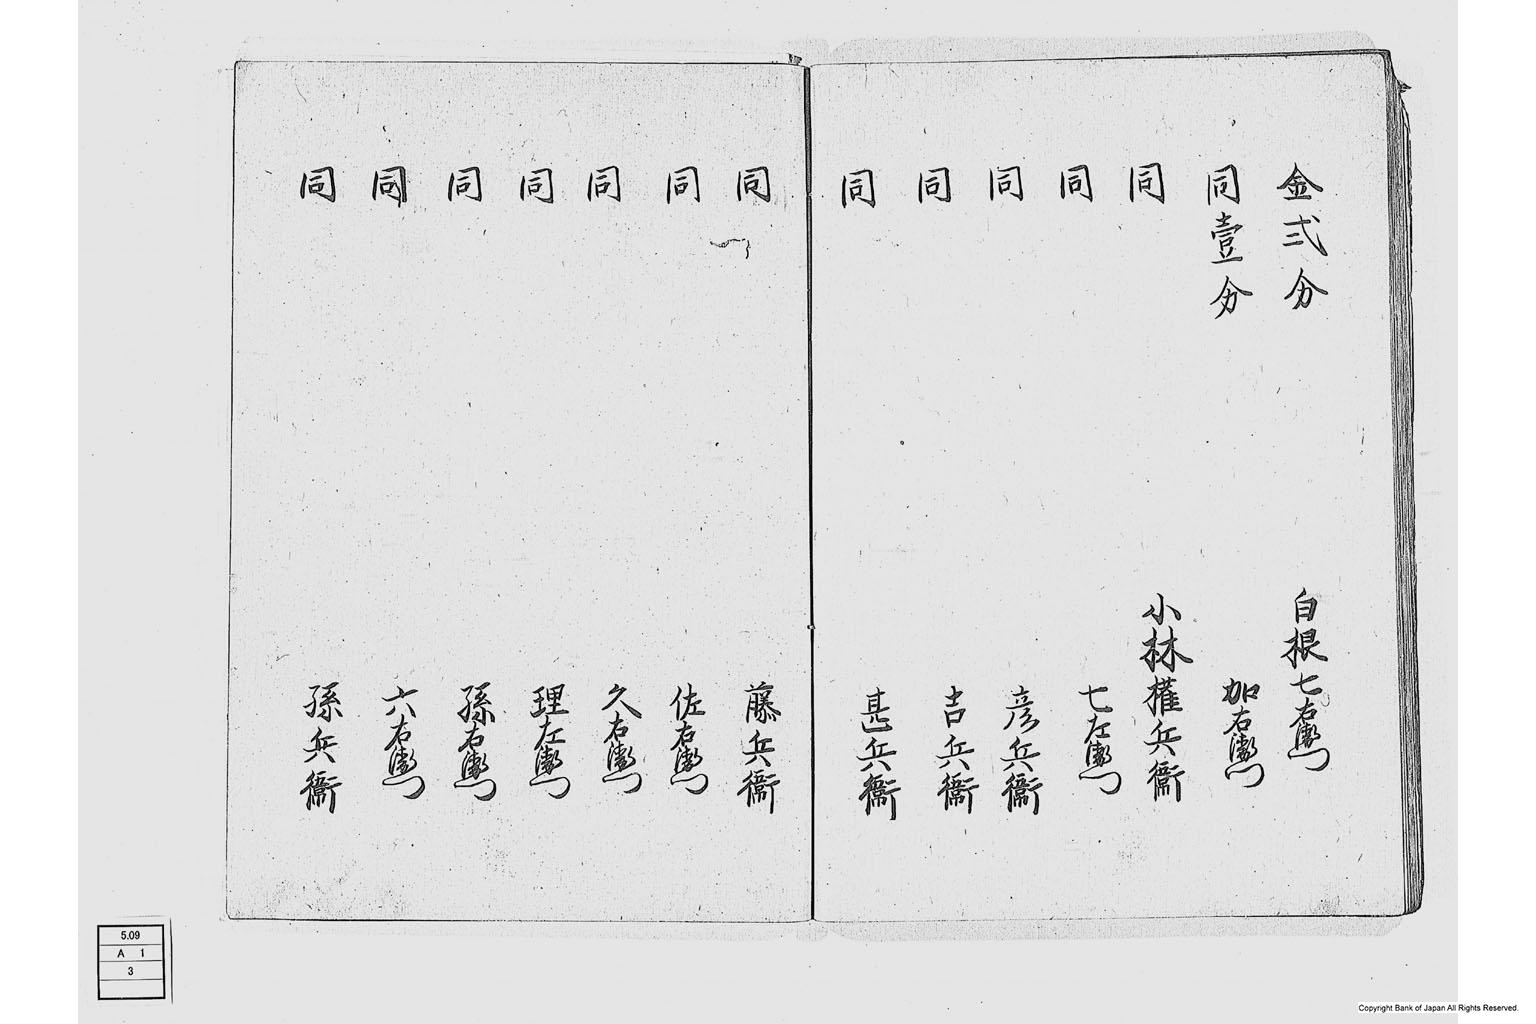 金弐分 白根七右衛門
同壹分 加右衛門
同 小林権兵衛
同 七左衛門
同 彦兵衛
同 吉兵衛
同 甚兵衛
同 藤兵衛
同 佐右衛門
同 久右衛門
同 理左衛門
同 孫右衛門
同 六右衛門
同 孫兵衛
5.09
A 1
3
Copyright Bank of Japan All Rights Reserved.